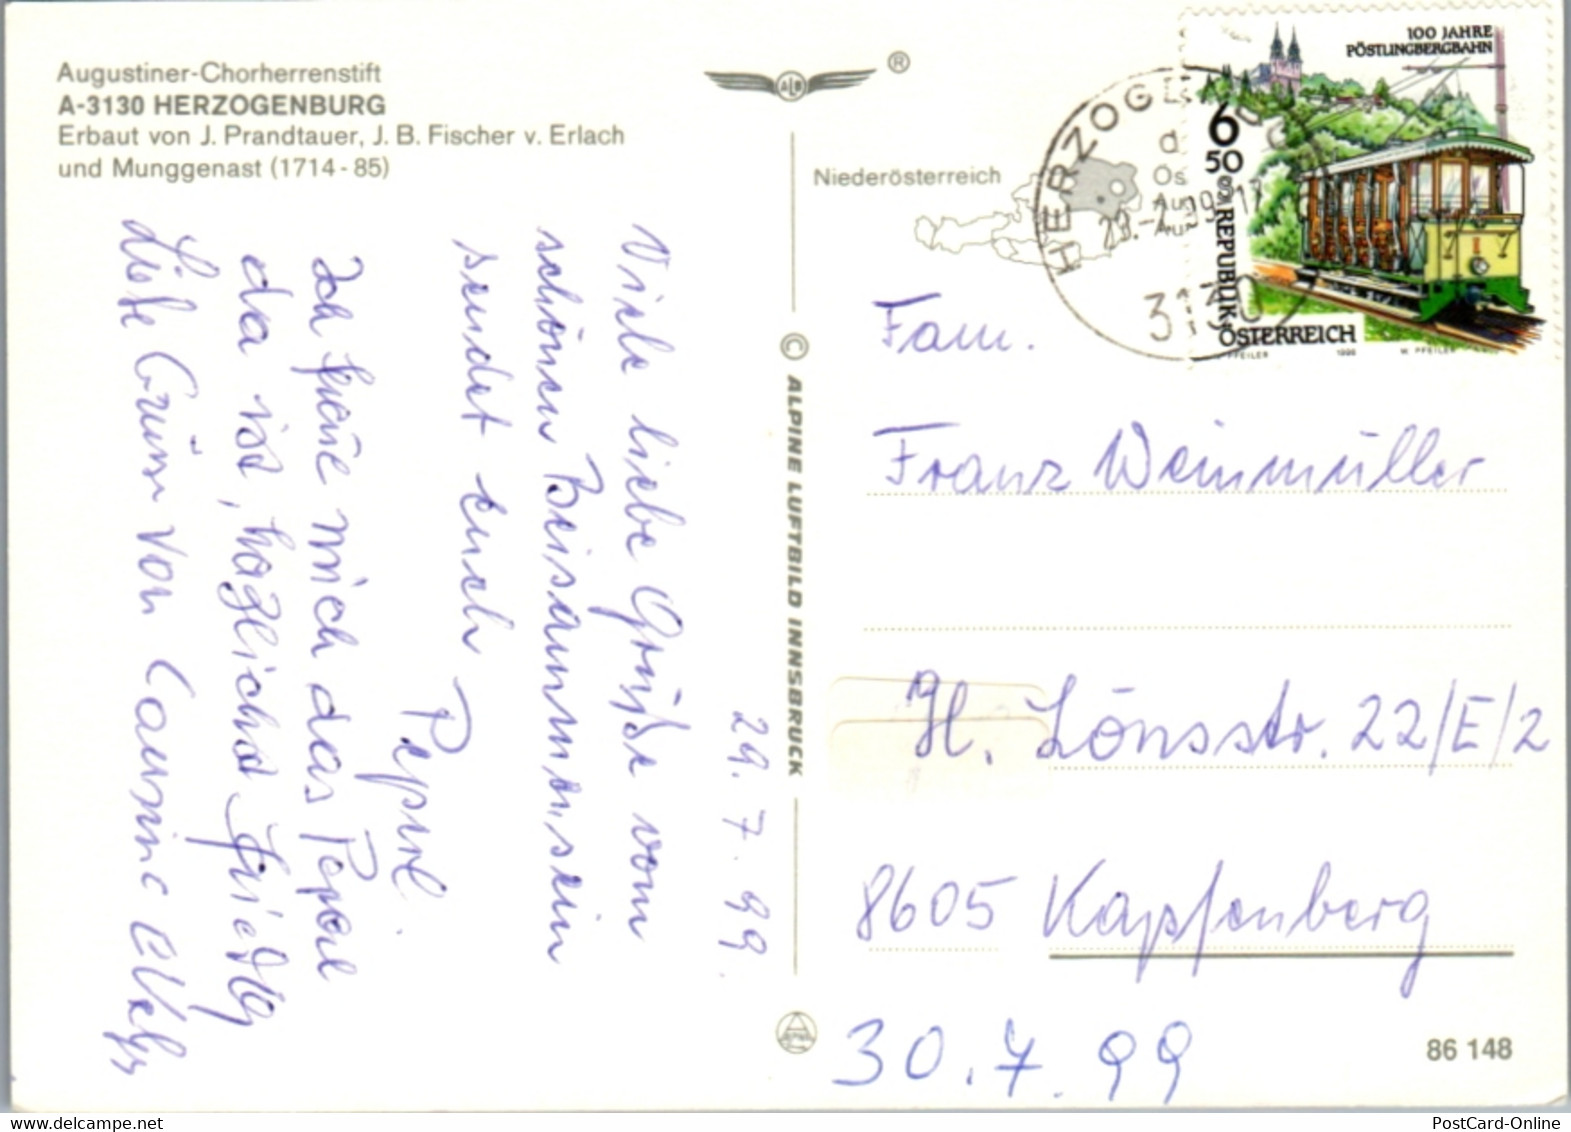 Augustiner-Chorherrenstift
A-3130 HERZOGENBURG
Erbaut von J. Prandtauer, J. B. Fischer v. Erlach
und Munggenast (1714-85)
ALB
®
Niederösterreich
HERZOGENBURG
3130
100 JAHRE
PÖSTLINGBERGBAHN
6
50
S
REPUBLIK
ÖSTERREICH
PFEILER 1998 W. PFEILER
29.7.99.
Viele liebe Grüße vom
schönen Beisammensein
sendet euch
Pepperl.
Ich freue mich das Peperl
da ist, 
Liebe Grüße von
© ALPINE LUFTBILD INNSBRUCK
Fam.
Franz Weinmüller
H. Lönsstr. 22/E/2
8605 Kapfenberg
30.7.99
86 148
PostCard-Online